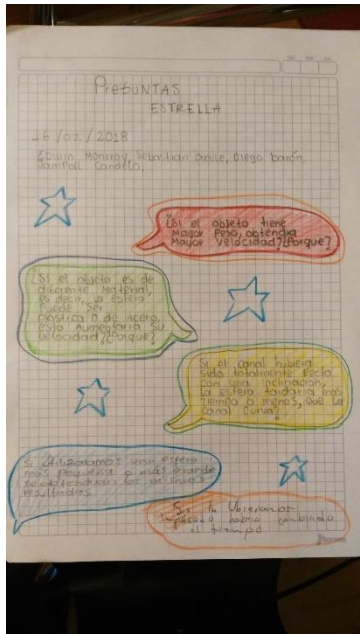 PreGUNTAS
ESTRELLA
26/07/2018
Edwin Monroy, Sebastian, Diego barón.
¿Si el objeto tiene
Mayor Peso, obtendria
Mayor Velocidad? ¿Porque?
¿Si el objeto es de
diferente Material,
es decir, la esfera
Puede Ser
plástica o de acero,
esto aumentaria Su
velocidad, ¿Porque?
Si el canal hubiera
Sido totalmente Recta
con una inclinación,
la esfera tardaria más
tiempo o menos, que la
canal Curva?
Si utilizaramos una esfera
más pequeña o más grande
se obtendrian los mismos
resultados
Si la Ubieramos
habria cambiado
el tiempo